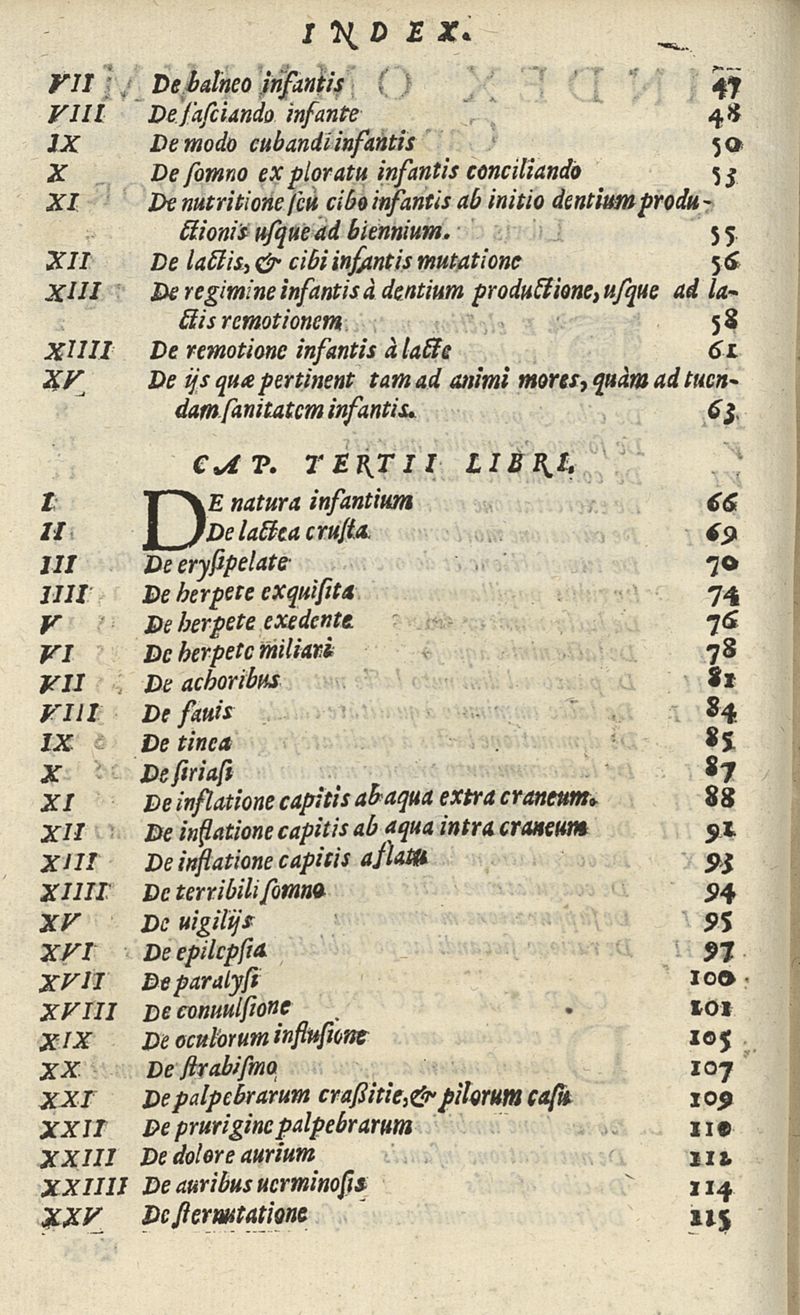 INDEX.
VII De balneo infantis 47
VIII De faſciando infante 48
IX De modo cubandi infantis 50
X De ſomno exploratu infantis conciliando 53
XI De nutritione ſeu cibo infantis ab initio dentium produ-
ctionis uſque ad biennium. 55
XII De lactis, & cibi infantis mutatione 56
XIII De regimine infantis à dentium productione, uſque ad la-
ctis remotionem 58
XIIII De remotione infantis à lacte 61
XV De ijs quæ pertinent tam ad animi mores, quàm ad tuen-
dam ſanitatem infantis. 63
CAP. TERTII LIBRI.
I DE natura infantium 66
II De lactea cruſta 69
III De eryſipelate 70
IIII De herpete exquiſita 74
V De herpete exedente 76
VI De herpete miliari 78
VII De achoribus 81
VIII De fauis 84
IX De tinea 85
X De ſiriaſi 87
XI De inflatione capitis ab aqua extra craneum. 88
XII De inflatione capitis ab aqua intra craneum 92
XIII De inflatione capitis a flatu 93
XIIII De terribili ſomno 94
XV De uigilijs 95
XVI De epilepſia 97
XVII De paralyſi 100
XVIII De conuulſione 101
XIX De oculorum influſione 105
XX De ſtrabiſmo 107
XXI De palpebrarum craßitie, & pilorum caſu 109
XXII De prurigine palpebrarum 110
XXIII De dolore aurium 112
XXIIII De auribus uerminoſis 114
XXV De ſternutatione 115